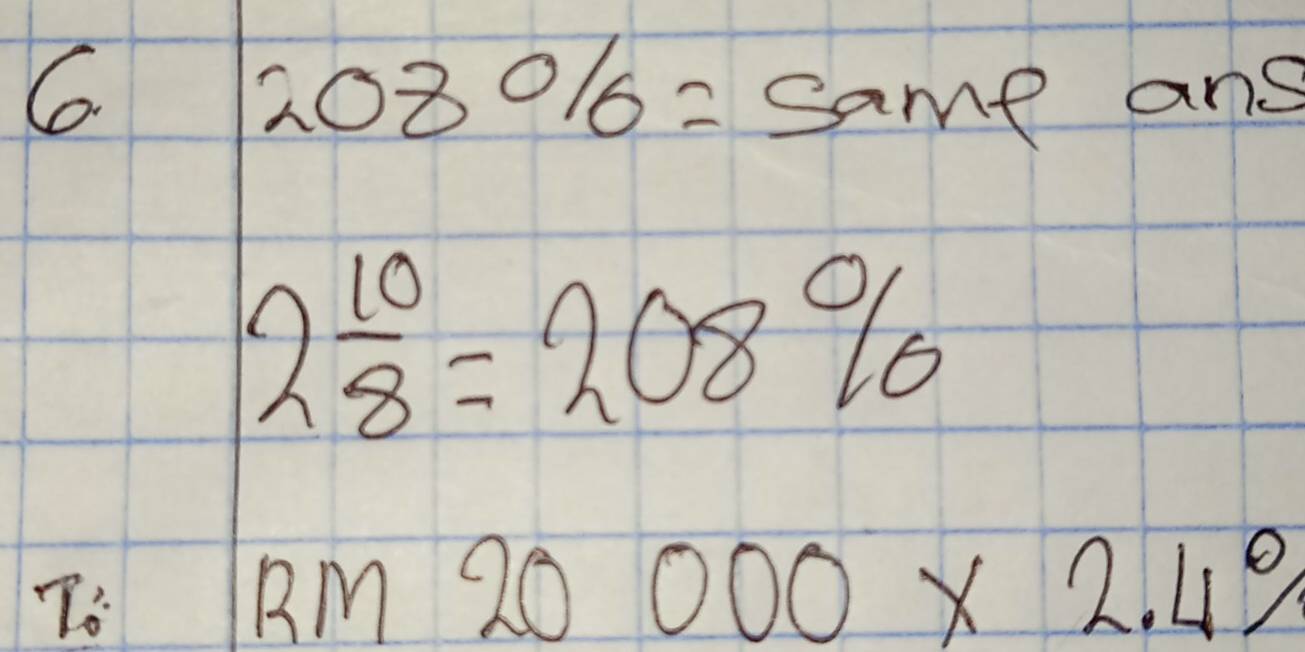 6. 208 % = same ans
2 10/8 = 208 %
7. RM 20 000 x 2.4%